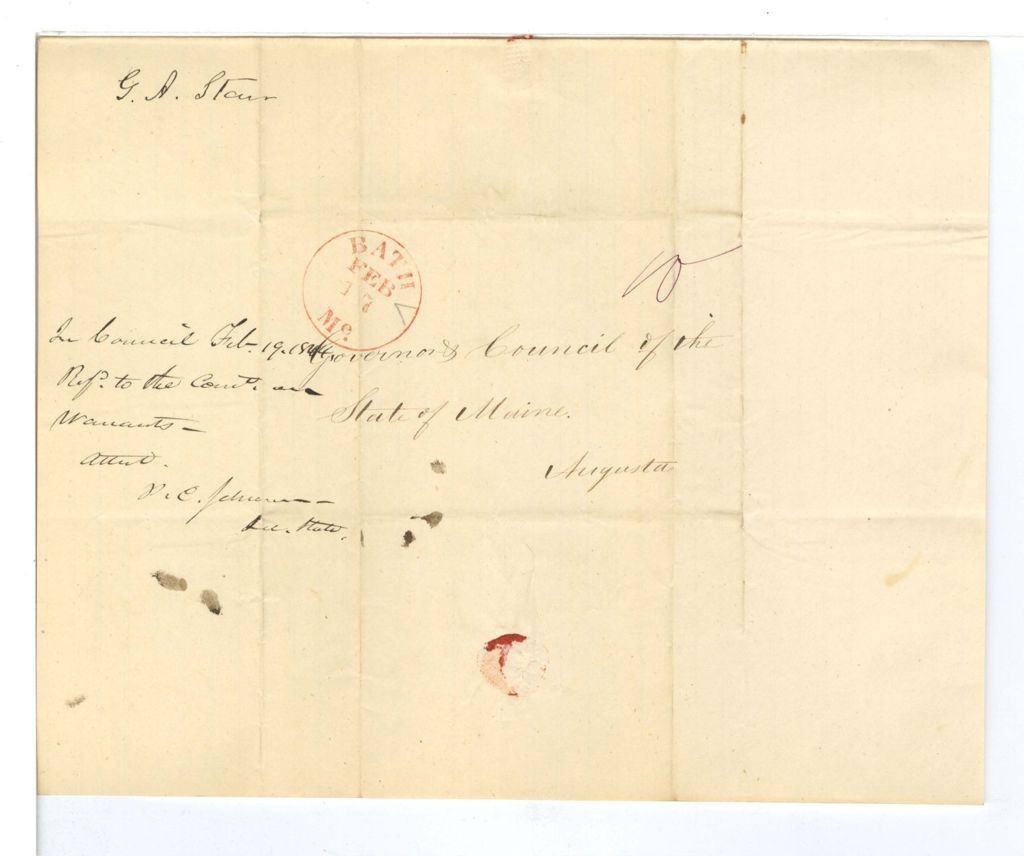 G. A. Starr
BATH
FEB
17
Me.
10
Governor & Council of the
State of Maine.
Augusta
In Council Feb. 19. 1844.
Refd. to the Comte. on
Warrants—
Attest.
P. C. Johnson—
Sec. State.